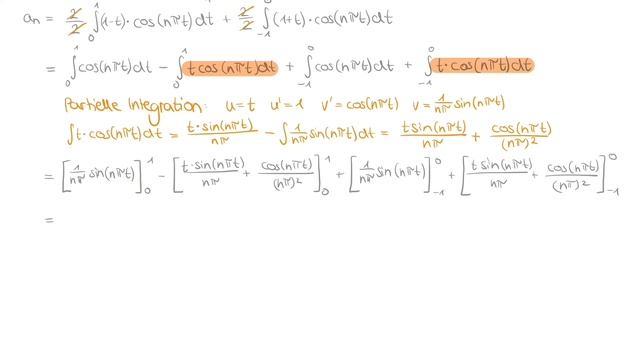 aₙ = 2/2 ∫₀¹ (1-t)·cos(nπt)dt + 2/2 ∫₋₁⁰ (1+t)·cos(nπt)dt
= ∫₀¹ cos(nπt)dt − ∫₀¹ t cos(nπt)dt + ∫₋₁⁰ cos(nπt)dt + ∫₋₁⁰ t·cos(nπt)dt
Partielle Integration: u=t u'=1 v'=cos(nπt) v=1/nπ sin(nπt)
∫t·cos(nπt)dt = t·sin(nπt)/nπ − ∫1/nπ sin(nπt)dt = t sin(nπt)/nπ + cos(nπt)/(nπ)²
= [1/nπ sin(nπt)]₀¹ − [t·sin(nπt)/nπ + cos(nπt)/(nπ)²]₀¹ + [1/nπ sin(nπt)]₋₁⁰ + [t sin(nπt)/nπ + cos(nπt)/(nπ)²]₋₁⁰
=